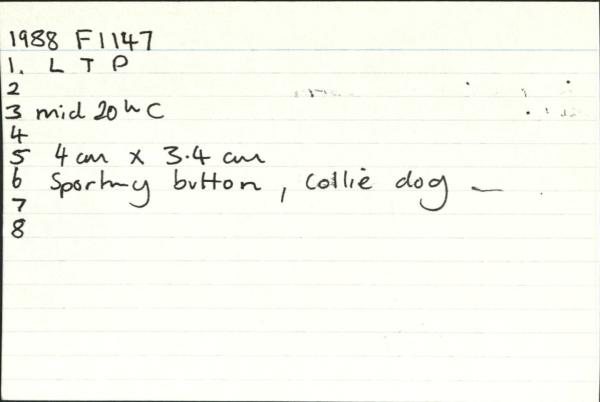 1988 F1147
1. L T P
2
3 mid 20th C
4
5 4 cm x 3.4 cm
6 Sporting button, collie dog —
7
8